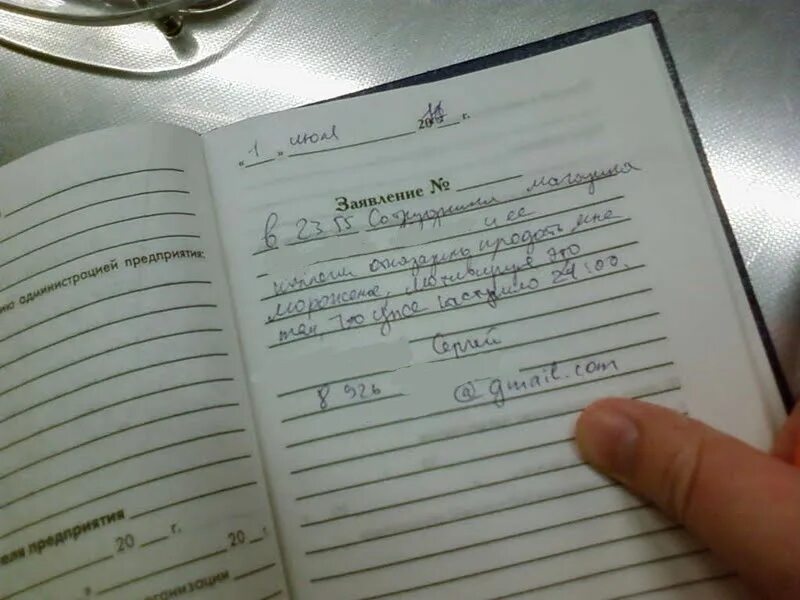 « 1 » июля 20 г.
Заявление №
В 23 55 Сотрудники магазина
и её
коллеги отказались продать мне
мороженое, мотивируя это
тем, что уже наступило 24:00.
Сергей
8 926
@gmail.com
ию администрацией предприятия:
еля предприятия
20 г.
20
рганизации